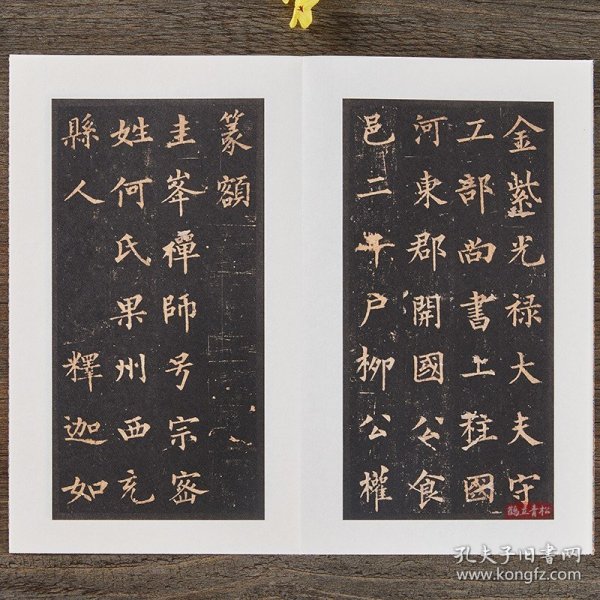 金紫光禄大夫守
工部尚書上柱國
河東郡開國公食
邑二千户柳公權
篆額
圭峯禪師号宗密
姓何氏果州西充
縣人釋迦如
鶴立青松
孔夫子旧書网
www.kongfz.com